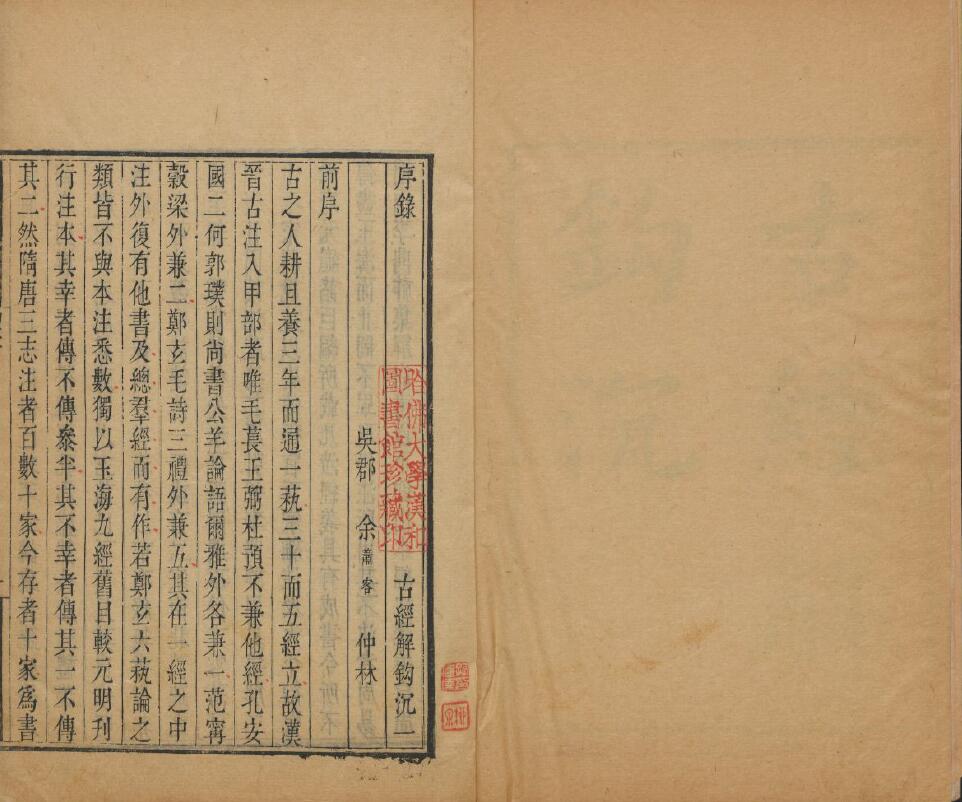 序錄　古經解鈎沉一
吳郡　余蕭客　仲林
前序
古之人耕且養三年而通一蓺三十而五經立故漢
晉古注入甲部者唯毛萇王弼杜預不兼他經孔安
國二何郭璞則尚書公羊論語爾雅外各兼一范甯
穀梁外兼二鄭玄毛詩三禮外兼五其在一經之中
注外復有他書及總羣經而有作若鄭玄六蓺論之
類皆不與本注悉數獨以玉海九經舊目較元明刊
行注本其幸者傳不傳參半其不幸者傳其一不傳
其二然隋唐三志注者百數十家今存者十家爲書
哈佛大學漢和
圖書館珍藏印